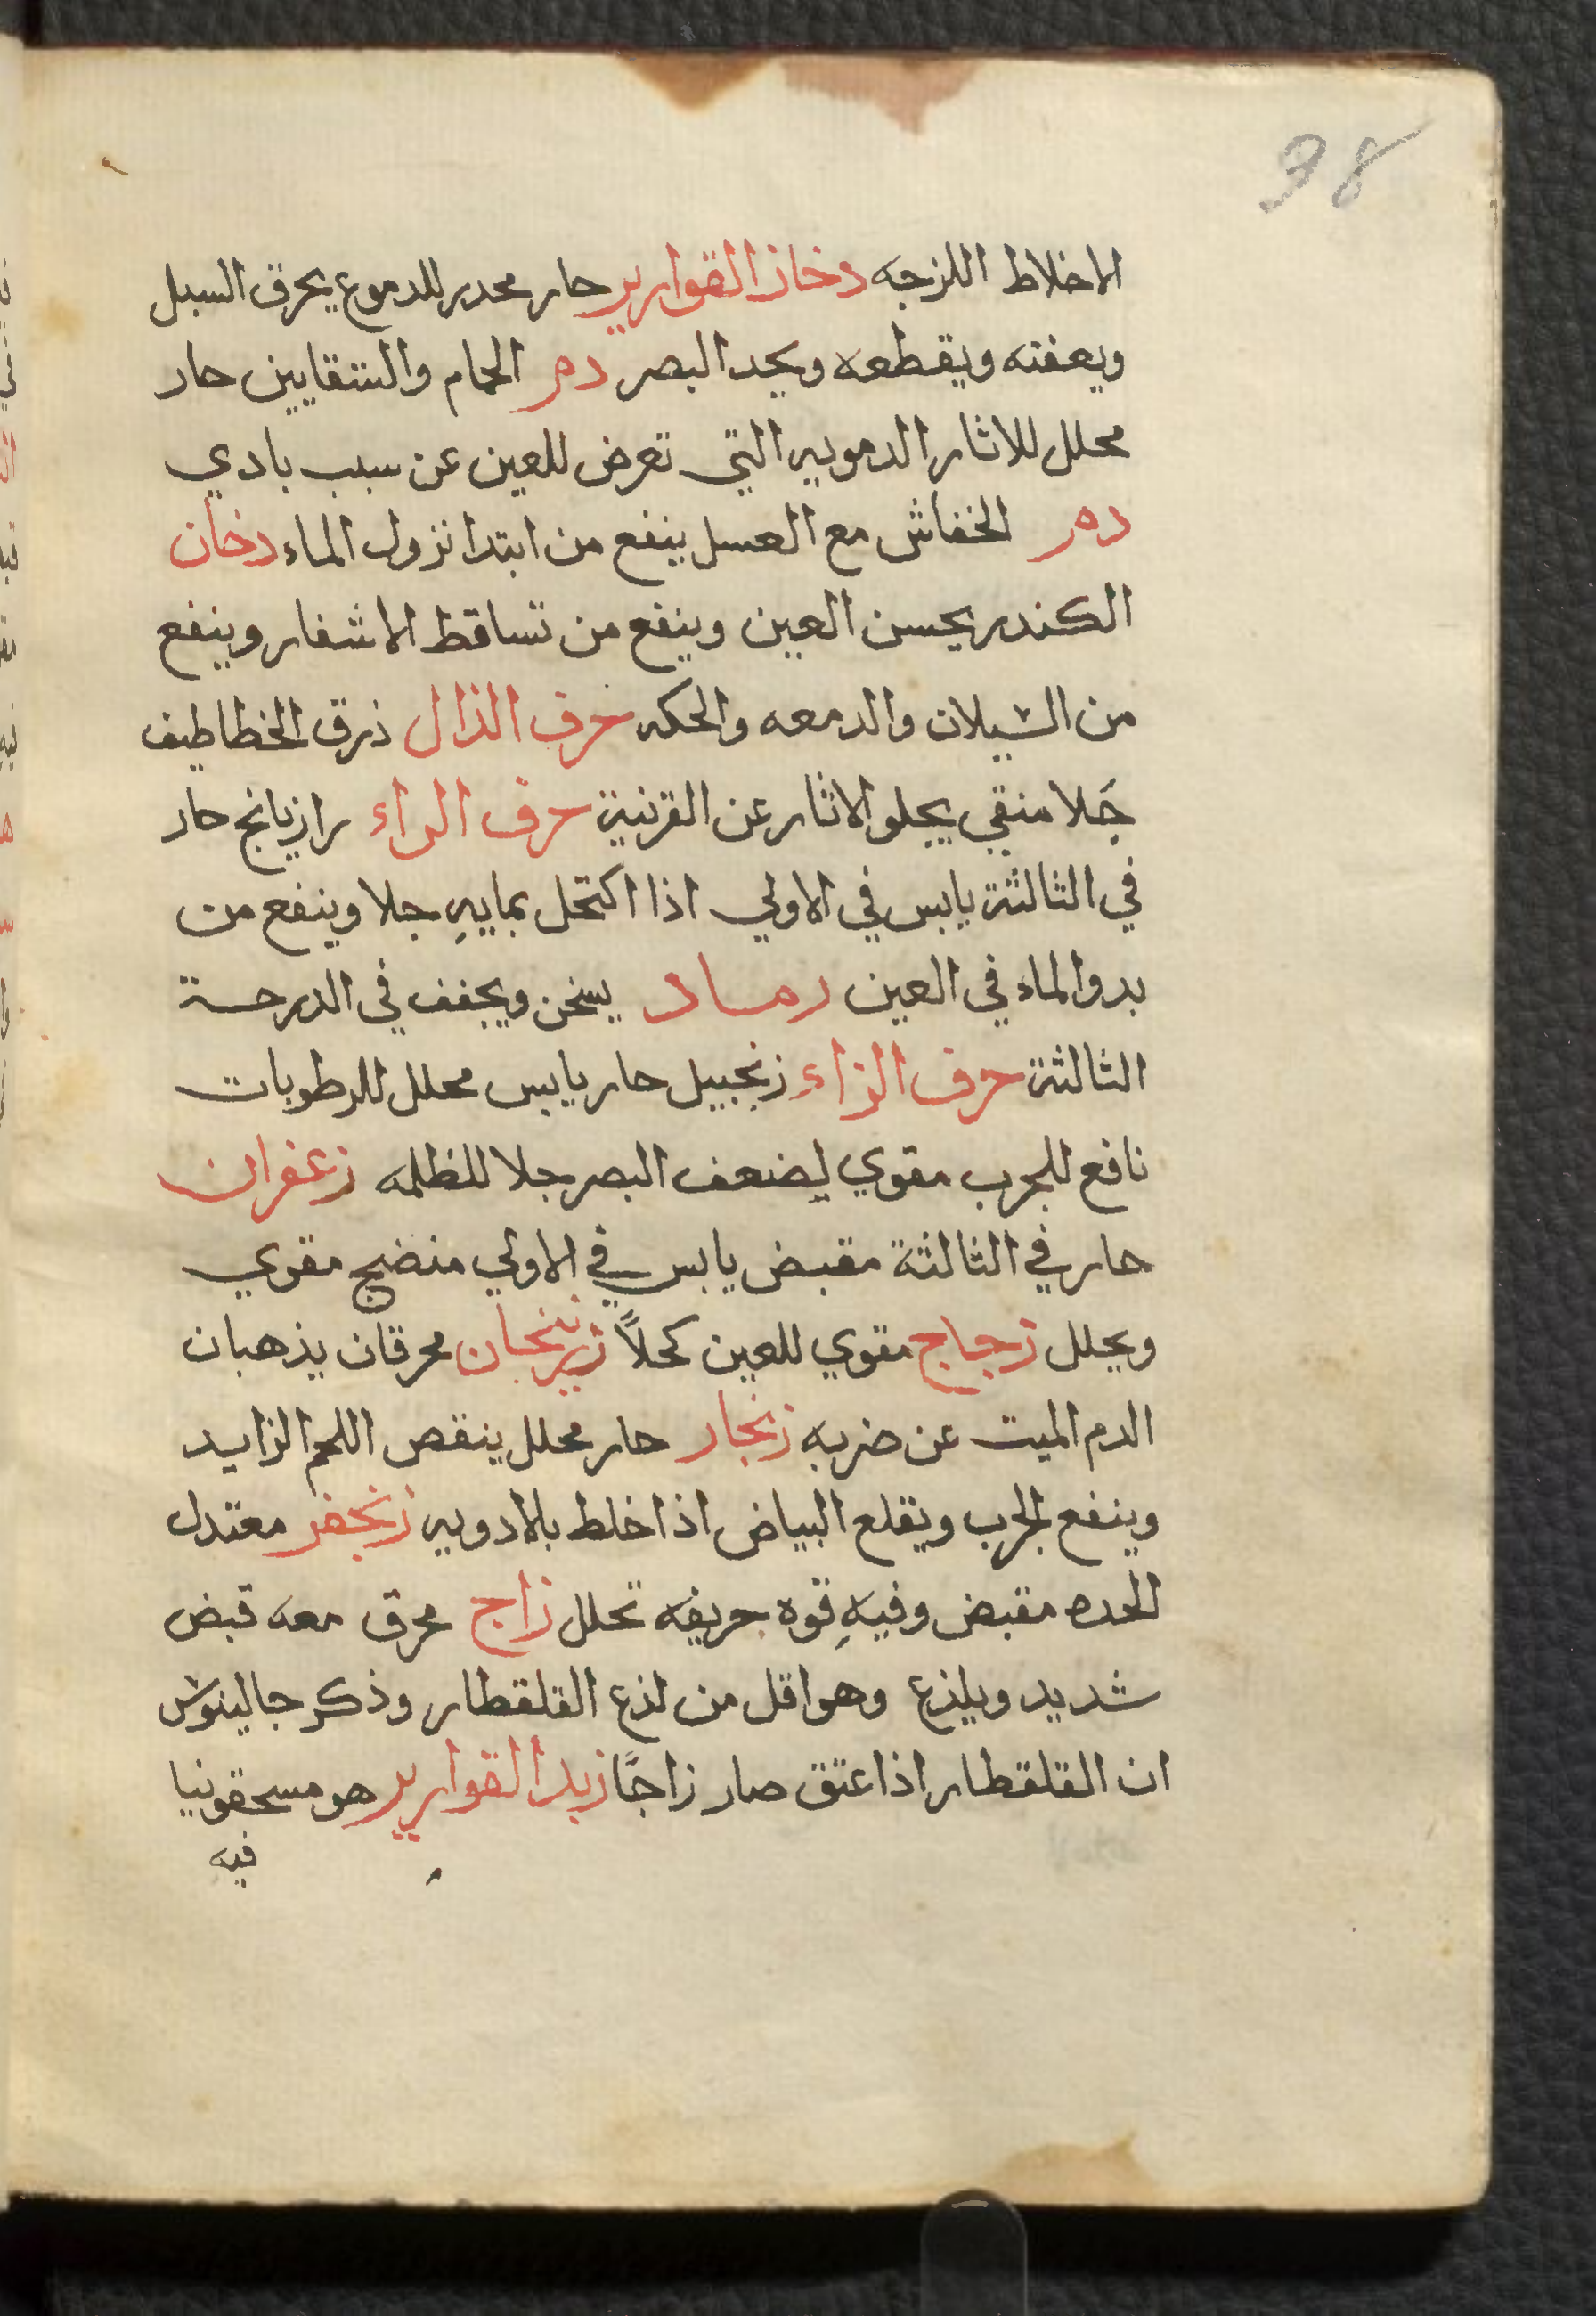 38
الاخلاط اللزجه دخان القوارير حار محدر للدموع يحرق السبل
ويعفنه ويقطعه ويحد البصر دم الحمام والشقايين حار
محلل للاثار الدمويه التي تعرض للعين عن سبب بادي
دم الخفاش مع العسل ينفع من ابتدا نزول الماء دخان
الكندر يحسن العين وينفع من تساقط الاشفار وينفع
من السيلان والدمعه والحكه حرف الذال ذرق الخطاطيف
جلا منقي يجلو الاثار عن القرنية حرف الراء رازيانج حار
في الثالثة يابس في الاولي اذا اكتحل بمايهِ جلا وينفع من
بدو الماء في العين رماد يسخن ويجفف في الدرحة
الثالثة حرف الزاء زنجبيل حار يابس محلل للرطوبات
نافع للجرب مقوي لضعف البصر جلا للظلمه زعفران
حار في الثالثة مقبض يابس في الاولي منضج مقوي
ويحلل زجاج مقوي للعين كحلاً زرنيخان محرقان يذهبان
الدم الميت عن ضربه زنجار حار محلل ينقص اللحم الزايد
وينفع الجرب ويقلع البياض اذا خلط بالادويه زنجفر معتدل
الحده مقبض وفيهِ قوه حريفه تحلل زاج محرق معه قبض
شديد ويلذع وهو اقل من لذع القلقطار وذكر جالينوس
ان القلقطار اذا عتق صار زاجًا زبد القوارير هو مسحقونيا
فيه